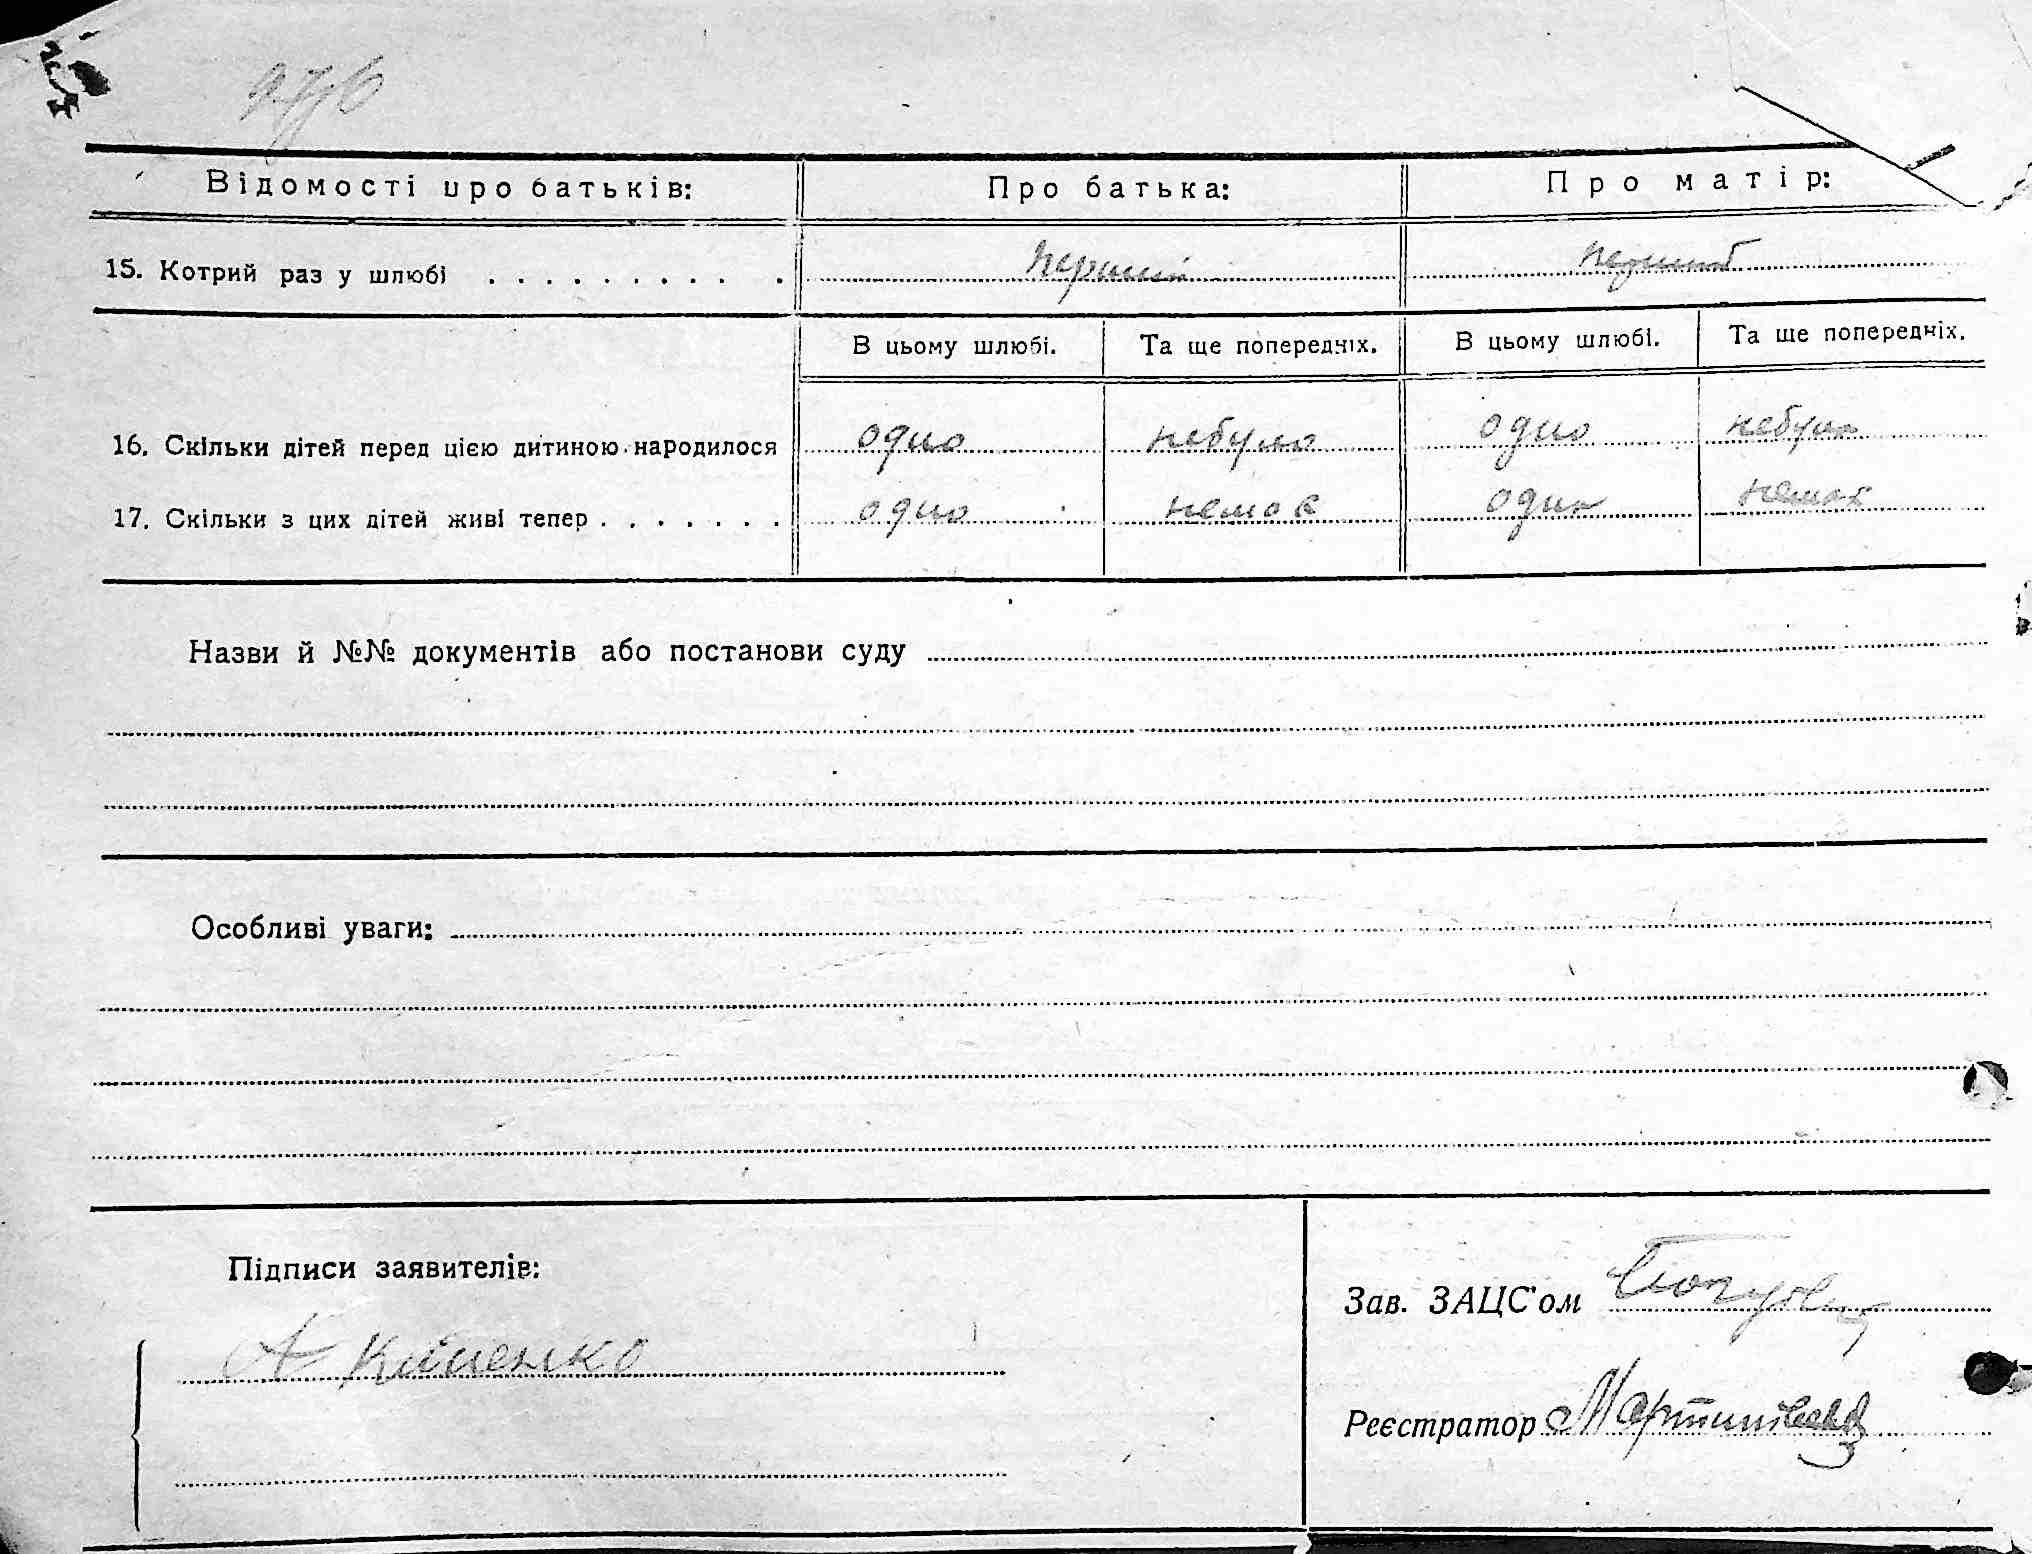 Відомості про батьків: Про батька: Про матір:
15. Котрий раз у шлюбі . . . . . . . . . . перший перший
В цьому шлюбі. Та ще попередніх. В цьому шлюбі. Та ще попередніх.
16. Скільки дітей перед цією дитиною народилося одно небуло одно небуло
17. Скільки з цих дітей живі тепер . . . . . . . одно немає одно немає
Назви й №№ документів або постанови суду
Особливі уваги:
Підписи заявителів:
Зав. ЗАЦС'ом
А.
Реєстратор